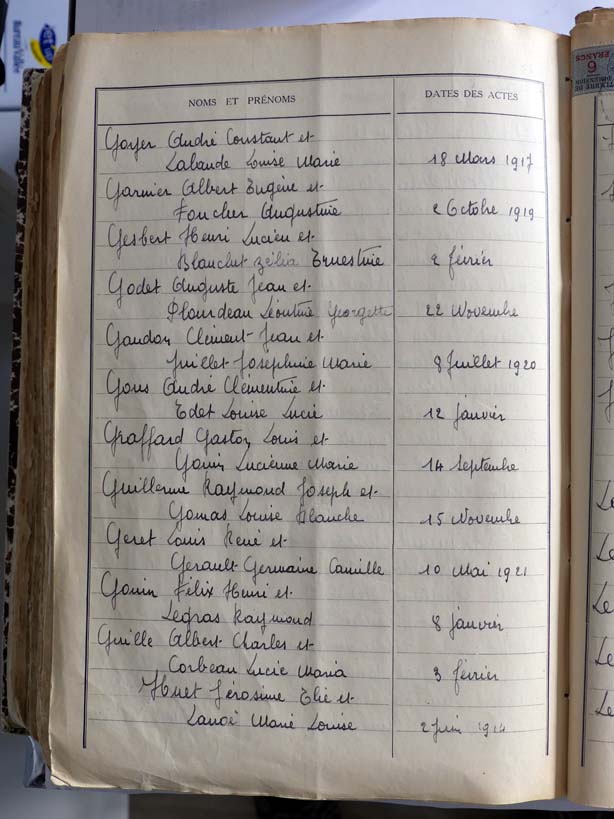 NOMS ET PRÉNOMS
DATES DES ACTES
Goyer André Constant et
Lalande Louise Marie 18 Mars 1917
Garnier Albert Eugène et
Foucher Augustine 2 Octobre 1919
Gesbert Henri Lucien et
Blanchet Zélia Ernestine 2 février
Godet Auguste Jean et
Plourdeau Léontine Georgette 22 Novembre
Gaudon Clément Jean et
Juillet Joséphine Marie 8 Juillet 1920
Gous André Clémentine et
Edet Louise Lucie 12 janvier
Graffard Gaston Louis et
Gouin Lucienne Marie 14 Septembre
Guillerme Raymond Joseph et
Gomas Louise Blanche 15 Novembre
Geret Louis René et
Gerault Germaine Camille 10 Mai 1921
Gouin Félix Henri et
Legras Raymond 8 janvier
Guille Albert Charles et
Corbeau Lucie Maria 3 février
Huet Jérosime Elie et
Lanoë Marie Louise 2 Juin 1914
6
FRANCS